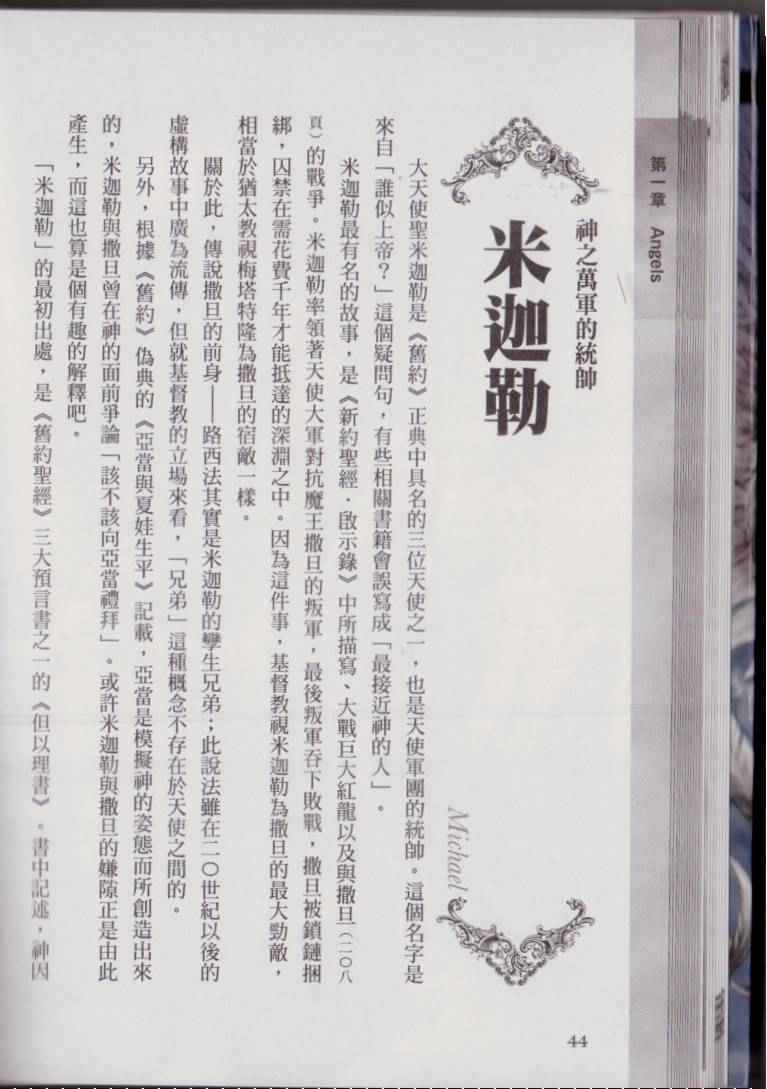 第一章 Angels
神之萬軍的統帥
米迦勒
Michael
大天使聖米迦勒是《舊約》正典中具名的三位天使之一，也是天使軍團的統帥。這個名字是
來自「誰似上帝？」這個疑問句，有些相關書籍會誤寫成「最接近神的人」。
米迦勒最有名的故事，是《新約聖經．啟示錄》中所描寫、大戰巨大紅龍以及與撒旦（二〇八
頁）的戰爭。米迦勒率領著天使大軍對抗魔王撒旦的叛軍，最後叛軍吞下敗戰，撒旦被鎖鏈捆
綁，囚禁在需花費千年才能抵達的深淵之中。因為這件事，基督教視米迦勒為撒旦的最大勁敵，
相當於猶太教視梅塔特隆為撒旦的宿敵一樣。
關於此，傳說撒旦的前身——路西法其實是米迦勒的孿生兄弟；此說法雖在二〇世紀以後的
虛構故事中廣為流傳，但就基督教的立場來看，「兄弟」這種概念不存在於天使之間的。
另外，根據《舊約》偽典的《亞當與夏娃生平》記載，亞當是模擬神的姿態而所創造出來
的，米迦勒與撒旦曾在神的面前爭論「該不該向亞當禮拜」。或許米迦勒與撒旦的嫌隙正是由此
產生，而這也算是個有趣的解釋吧。
「米迦勒」的最初出處，是《舊約聖經》三大預言書之一的《但以理書》。書中記述，神因
44